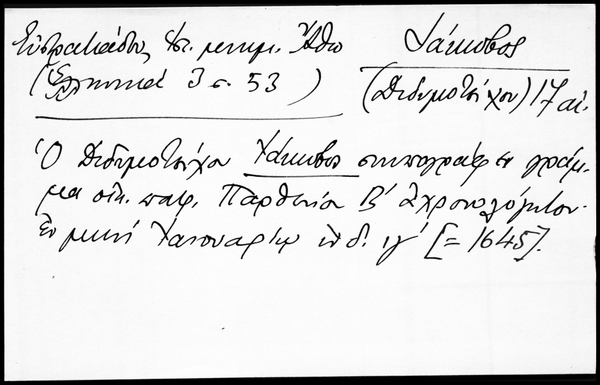 Εὐστρατιάδου, Ἱστ. μνημ. Ἄθω
(Ἑλληνικά 3 σ. 53)
Ἰάκωβος
(Διδυμοτείχου) 17 αἰ.
Ὁ Διδυμοτείχου Ἰάκωβος συνυπογράφει γράμ-
μα οἰκ. πατρ. Παρθενίου Β' ἀχρονολόγητον.
Ἐν μηνὶ Ἰανουαρίῳ ἰνδ. ιγ' [= 1645].